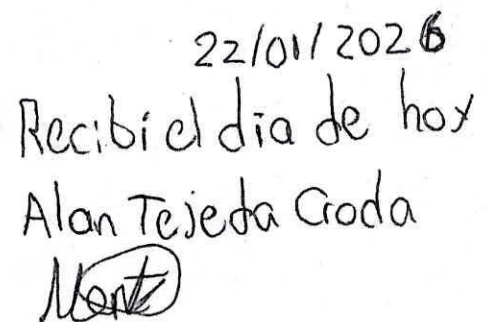 22/01/2026
Recibi el dia de hoy
Alan Tejeda Croda